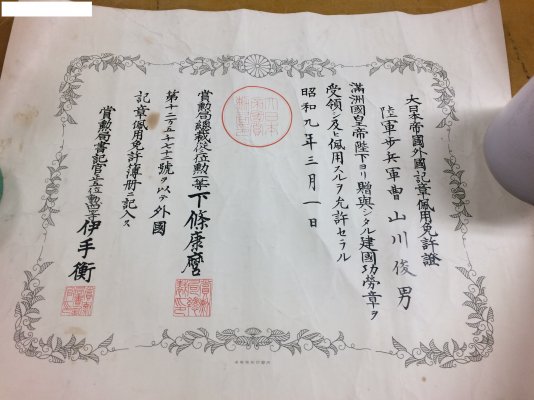 大日本帝國外國記章佩用免許證
陸軍步兵軍曹 山川俊男
滿洲國皇帝陛下ヨリ贈與シタル建國功勞章ヲ
受領シ及ヒ佩用スルヲ允許セラル
昭和九年三月一日
賞勲局總裁從三位勲一等下條康麿
第十二万五千七十三號ヲ以テ外國
記章佩用免許簿冊ニ記入ス
賞勲局書記官正五位勲四等伊手衡